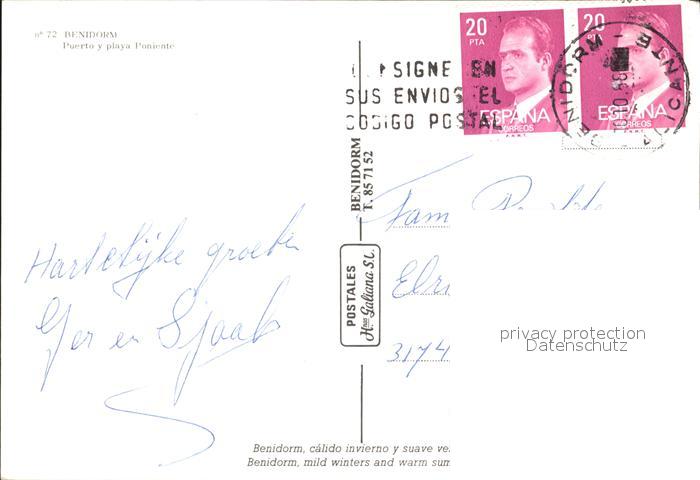 nº 72 BENIDORM
Puerto y playa Poniente
SIGNE EN
SUS ENVIOS EL
CODIGO POSTAL
20
PTA
ESPAÑA
CORREOS
20
PTA
ESPAÑA
CORREOS
BENIDORM
ALICANTE
BENIDORM
T. 85 71 52
POSTALES
Hnos Galiana S.L.
Hartelijke groeten
Ger en Sjaak
Fam
3174
privacy protection
Datenschutz
Benidorm, cálido invierno y suave
Benidorm, mild winters and warm